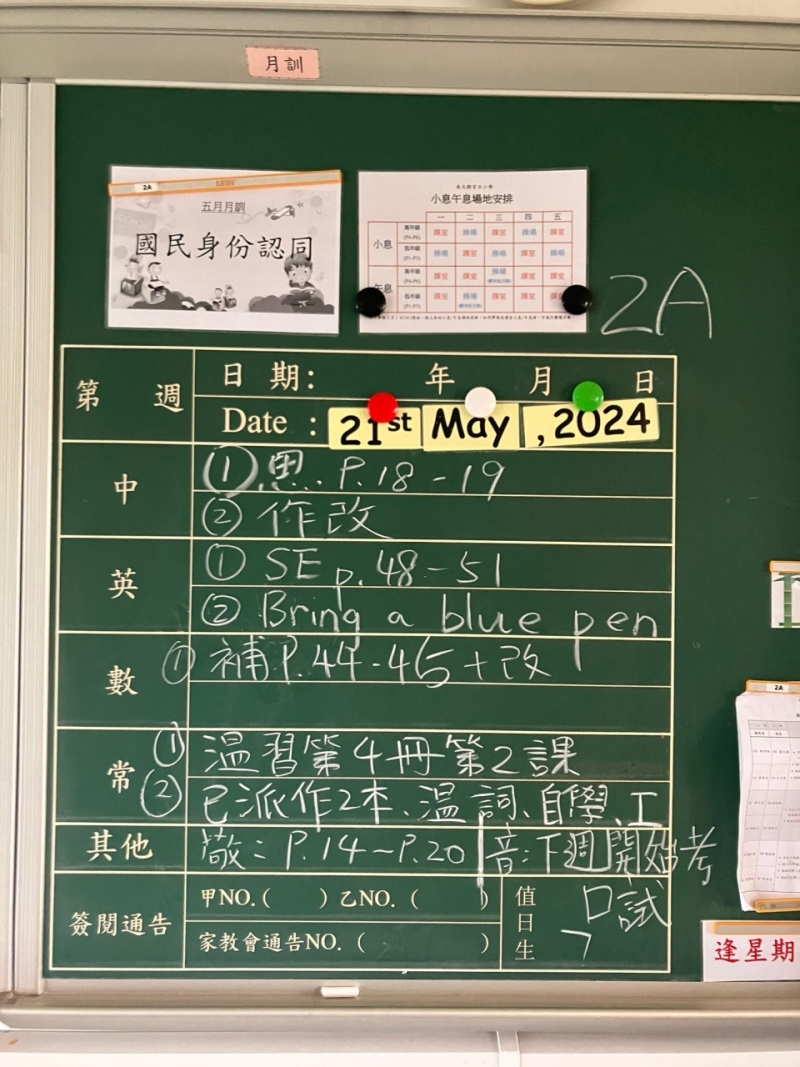 月訓
2A
五月月訓
國民身份認同
小息午息場地安排
一 二 三 四 五
小息 高年級 (P4-P6) 課室 操場 課室 操場 課室
低年級 (P1-P3) 操場 課室 操場 課室 操場
午息 高年級 (P4-P6) 課室 課室 操場 課室 課室
低年級 (P1-P3) 課室 操場 課室 課室 課室
2A
第 週
日期: 年 月 日
Date : 21st May , 2024
中 ① 思 P.18-19
② 作改
英 ① SE p.48-51
② Bring a blue pen
數 ① 補P.44-45+改
常 ① 溫習第4冊第2課
② 已派作2本、溫詞、自學、工
其他 敬: P.14~P.20 音:下週開始考
口試
簽閱通告 甲NO.( ) 乙NO. ( )
家教會通告NO. ( )
值日生 7
2A
逢星期